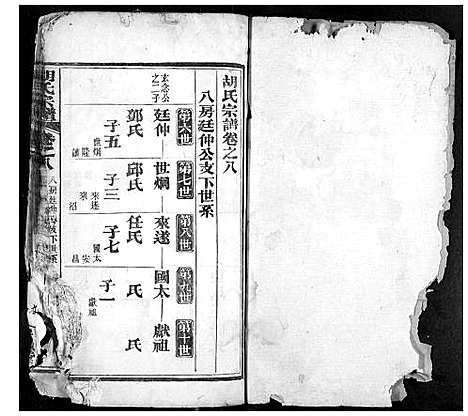 胡氏宗譜卷之八
八房廷仲公支下世系
第六世
第七世
第八世
第九世
第十世
玄念公
之二子
廷仲
世烱
來遂
國太
獻祖
郭氏
邱氏
任氏
氏
氏
子五
子三
子七
子一
世烱
來遂
國太
獻祖
胡氏宗譜
卷之八
八房廷仲公支下世系